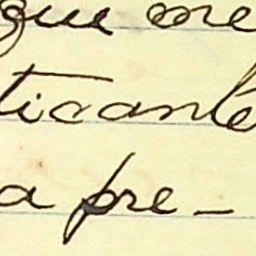 que me
ticante
a pre-